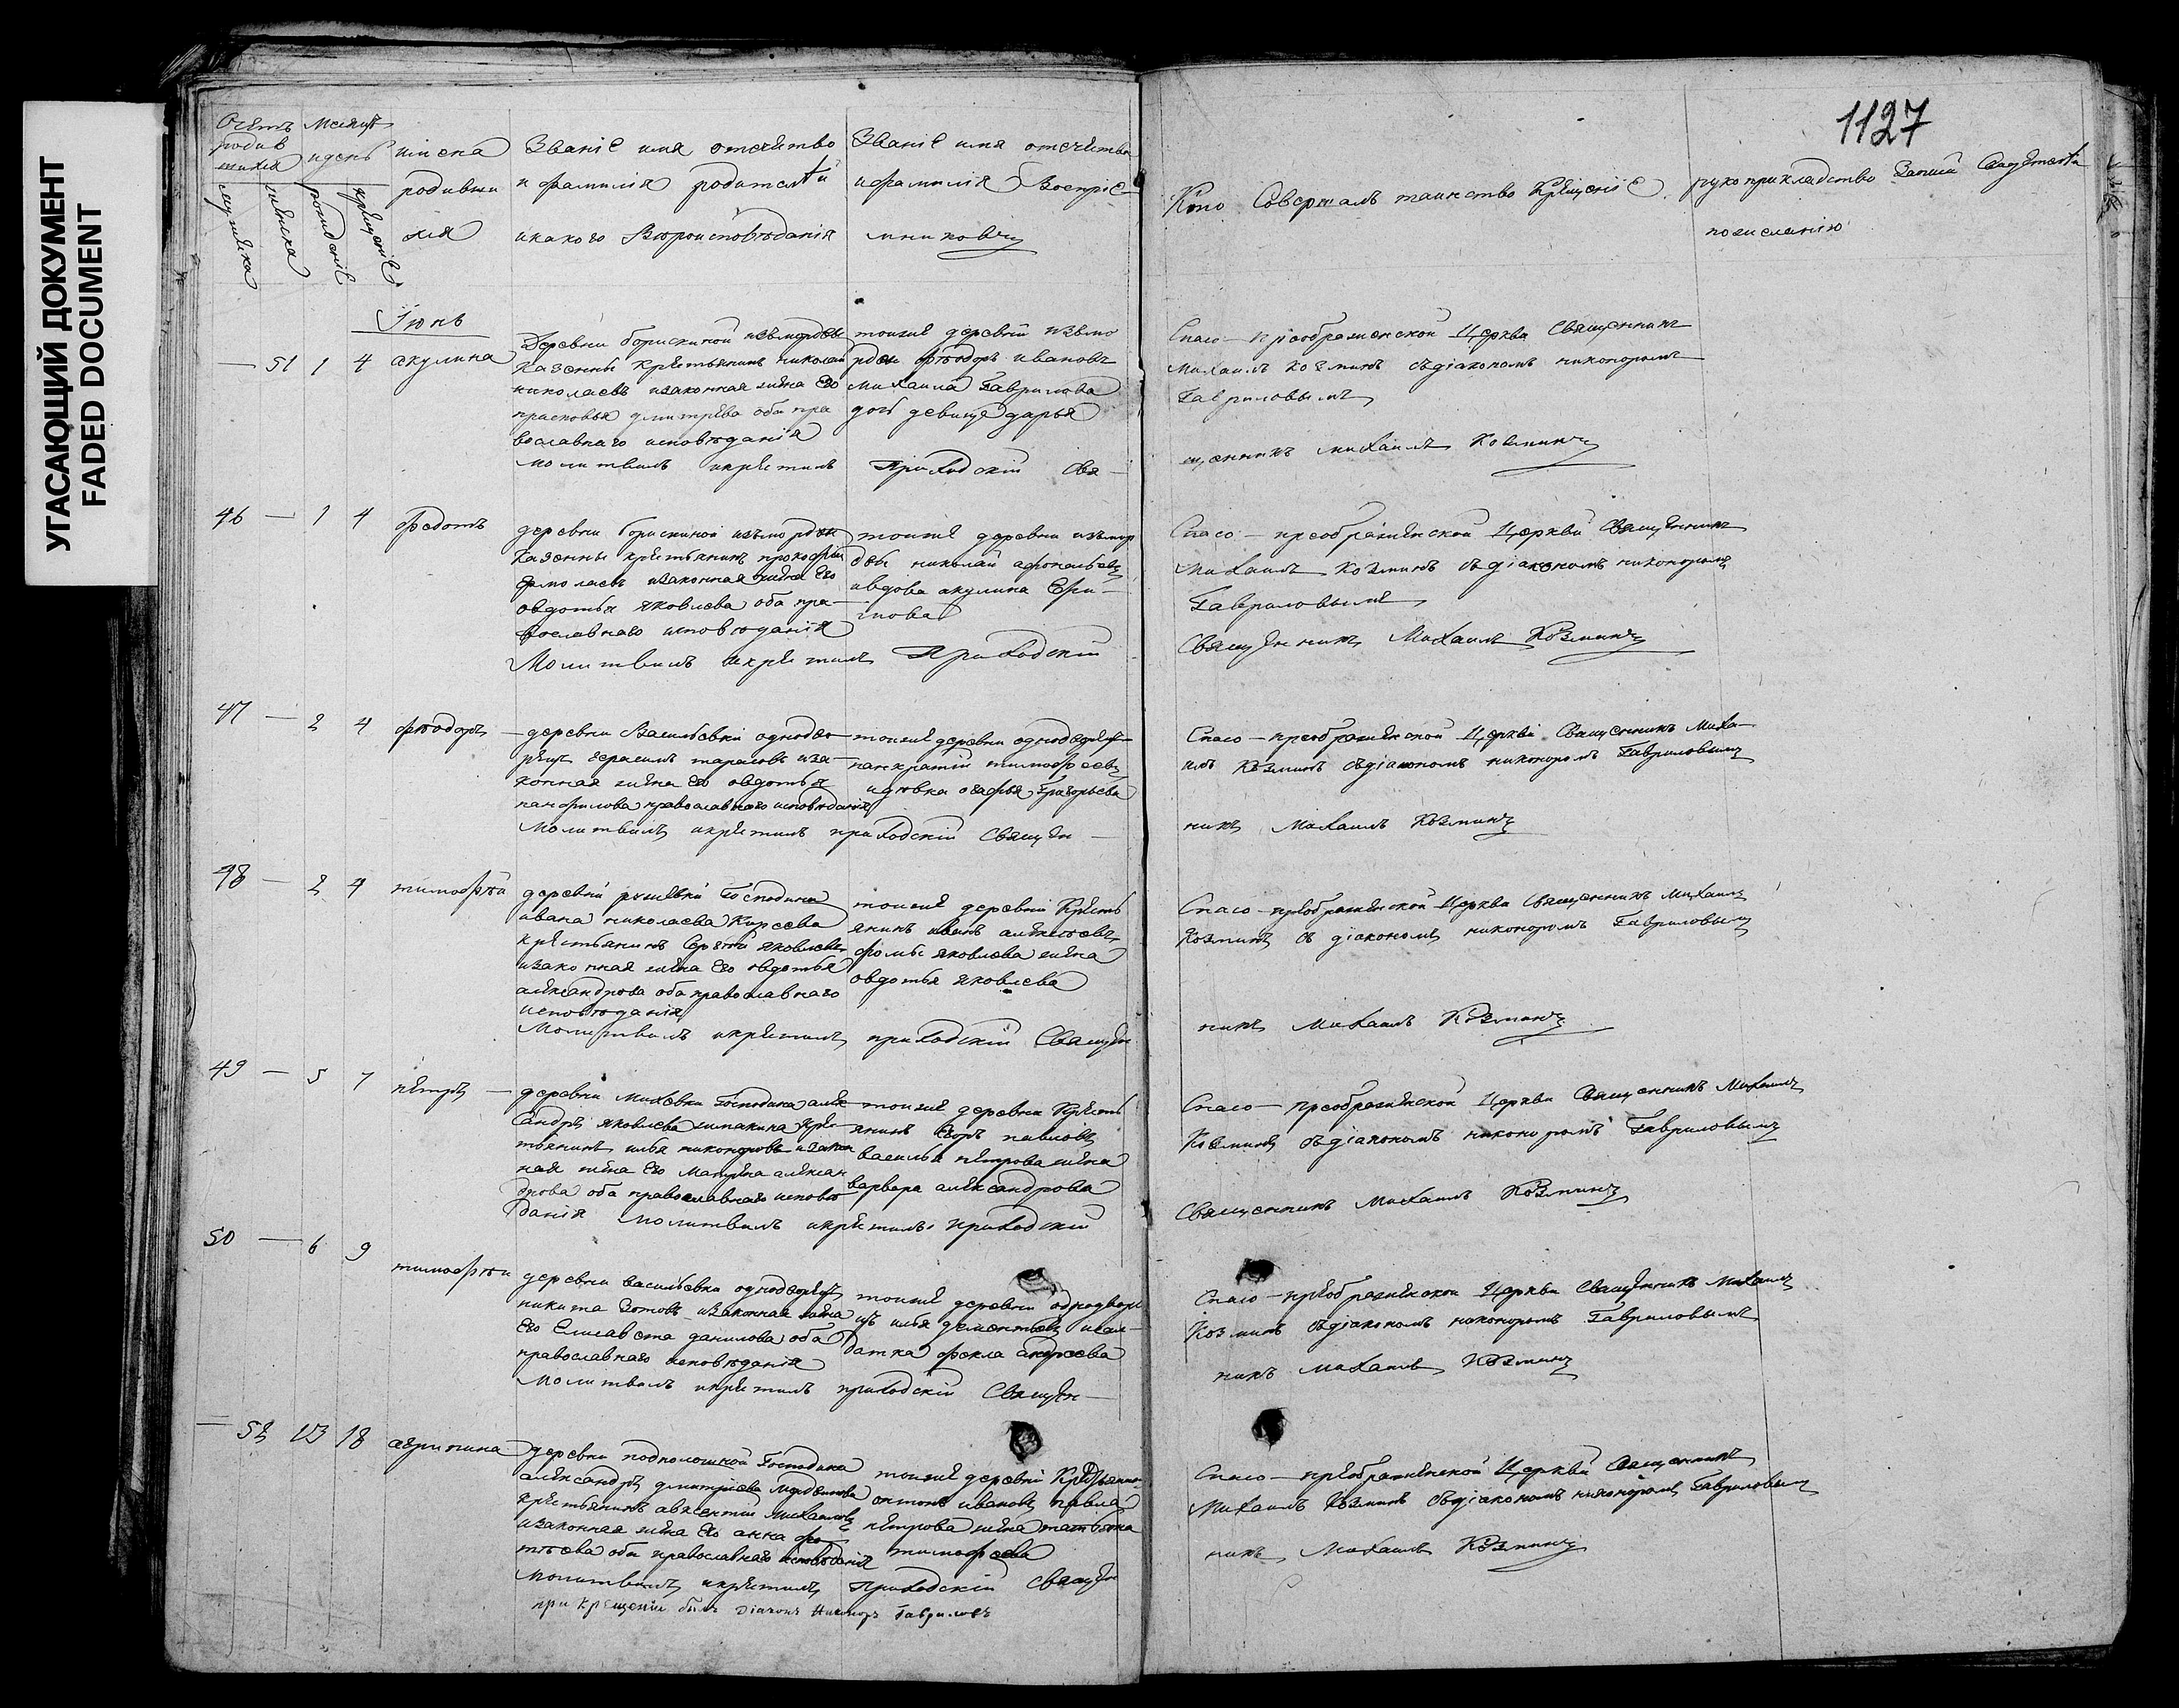 УГАСАЮЩИЙ ДОКУМЕНТ
FADED DOCUMENT
1127
Счетъ родив
шихся
мужеска
женска
Месяцъ
и день
рождениѣ
крещениѣ
имена
родивши
хся
Званiе имя отечество
и фамилiя родителей
и какого вѣроисповѣданiя
Званiе имя отечество
и фамилiя воспрiе
мниковъ
Кто совершалъ таинство крещенiе
рукоприкладство записи
по желанiю
Iюнь
— 51 1 4 акулина
Деревни борискиной изъ мордвы
казенны крестьянинъ николай
николаевъ изаконная жена Его
прасковья дмитрева оба пра
вославнаго исповѣданiя
молитвилъ икрестилъ приходскiй Свя
тойже деревни изъ мо
рдвы ѳеодоръ ивановъ
михаила Гаврилова
дочь девица дарья
Спасо-преображенской Церкви Священникъ
Михаилъ козминъ съдiакономъ никоноромъ
Гавриловымъ
щенникъ михаилъ Козминъ
46 — 1 4 федотъ
деревни борискиной изъ мордвы
казенны крестьянинъ прокофiй
Ермолаевъ изаконная жена Его
овдотья яковлева оба пра
вославнаго исповѣданiя
Молитвилъ икрестилъ Приходскiй
тойже деревни изъ мор
двы николай афонасьевъ
ивдова акулина
Спасо-преображенской Церкви Священникъ
Михаилъ козминъ съдiакономъ никоноромъ
Гавриловымъ
Священникъ Михаилъ Козминъ
47 — 2 4 фѣодоръ
деревни Васильевки однодво
рецъ герасимъ тарасовъ иза
конная жена Его овдотья
панфилова православнаго исповѣданiя
Молитвилъ икрестилъ приходскiй Священ
тойже деревни однодворецъ
панкратiй тимофеевъ
идѣвка огафья Григорьева
Спасо-преображенской Церкви Священникъ Миха
илъ Козминъ съдiакономъ никоноромъ Гавриловымъ
никъ Михаилъ Козминъ
48 — 2 4 тимофѣй
деревни Господина
ивана николаева Кирсева
крестьянинъ Сергей яковлевъ
изаконная жена Его овдотья
александрова оба православнаго
исповѣданiя
Молитвилъ икрестилъ приходскiй Священ
тойже деревни Кресть
янинъ иванъ алексѣевъ
фомы яковлева жена
овдотья яковлева
Спасо-преображенской Церкви Священникъ Михаилъ
Козминъ съ дiакономъ никоноромъ Гавриловымъ
никъ Михаилъ Козминъ
49 — 5 7 петръ
деревни Михевки Господина алек
сандръ яковлева кре
стьянинъ илья никоноровъ изакон
ная жена Его Матрена алексан
дрова оба православнаго исповѣ
данiя молитвилъ икрестилъ приходскiй
тойже деревни Кресть
янинъ Егоръ павловъ
василья петрова жена
варвара александрова
Спасо-преображенской Церкви Священникъ Михаилъ
Козминъ съдiакономъ никоноромъ Гавриловымъ
Священникъ Михаилъ Козминъ
50 — 6 9 тимофѣй
деревни васильевки однодворецъ
никита Зотовъ изаконная жена
Его Елисавета данилова оба
православнаго исповѣданiя
Молитвилъ икрестилъ приходскiй Священ
тойже деревни однодворе
цъ илья дементьевъ исол
датка фекла андреева
Спасо-преображенской Церкви Священникъ Михаилъ
Козминъ съдiакономъ никоноромъ Гавриловымъ
никъ михаилъ Козминъ
— 52 13 18 агрипина
деревни Господина
александръ дмитриева
крестьянинъ авксентiй Михаиловъ
изаконная жена Его анна фо
тѣева оба православнаго исповѣданiя
Молитвилъ икрестилъ Приходскiй Священ
тойже деревни Крестьянинъ
онтонъ ивановъ павла
петрова жена татьяна
тимофеева
Спасо-преображенской Церкви Священникъ
Михаилъ Козминъ съдiакономъ никоноромъ Гавриловымъ
никъ Михаилъ Козминъ
при крещенiи былъ Дiаконъ Никоноръ Гавриловъ